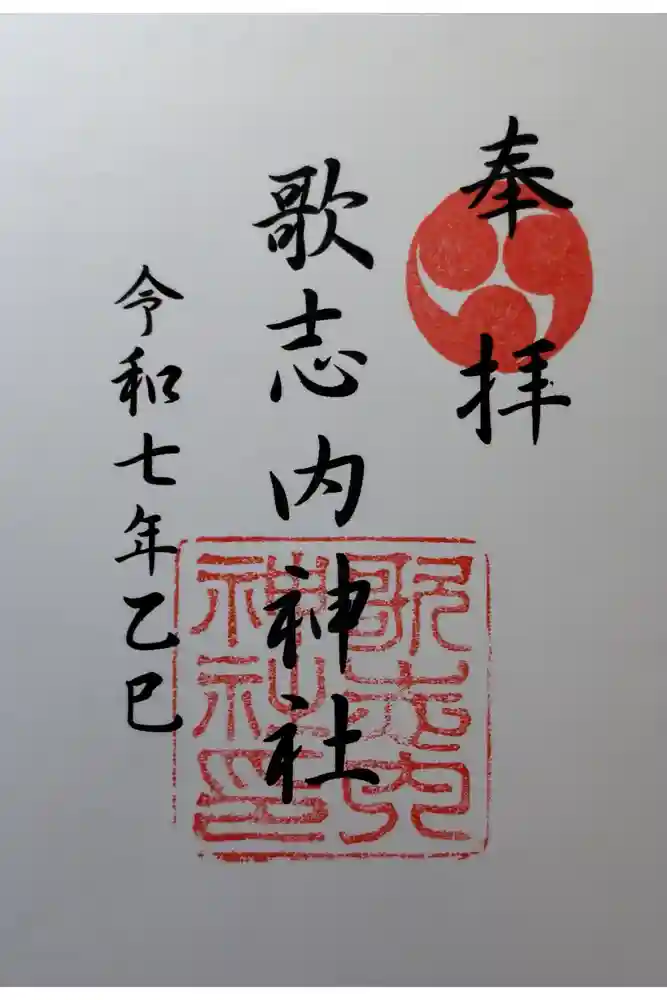 奉拝
歌志内神社
令和七年乙巳
歌志内
神社印